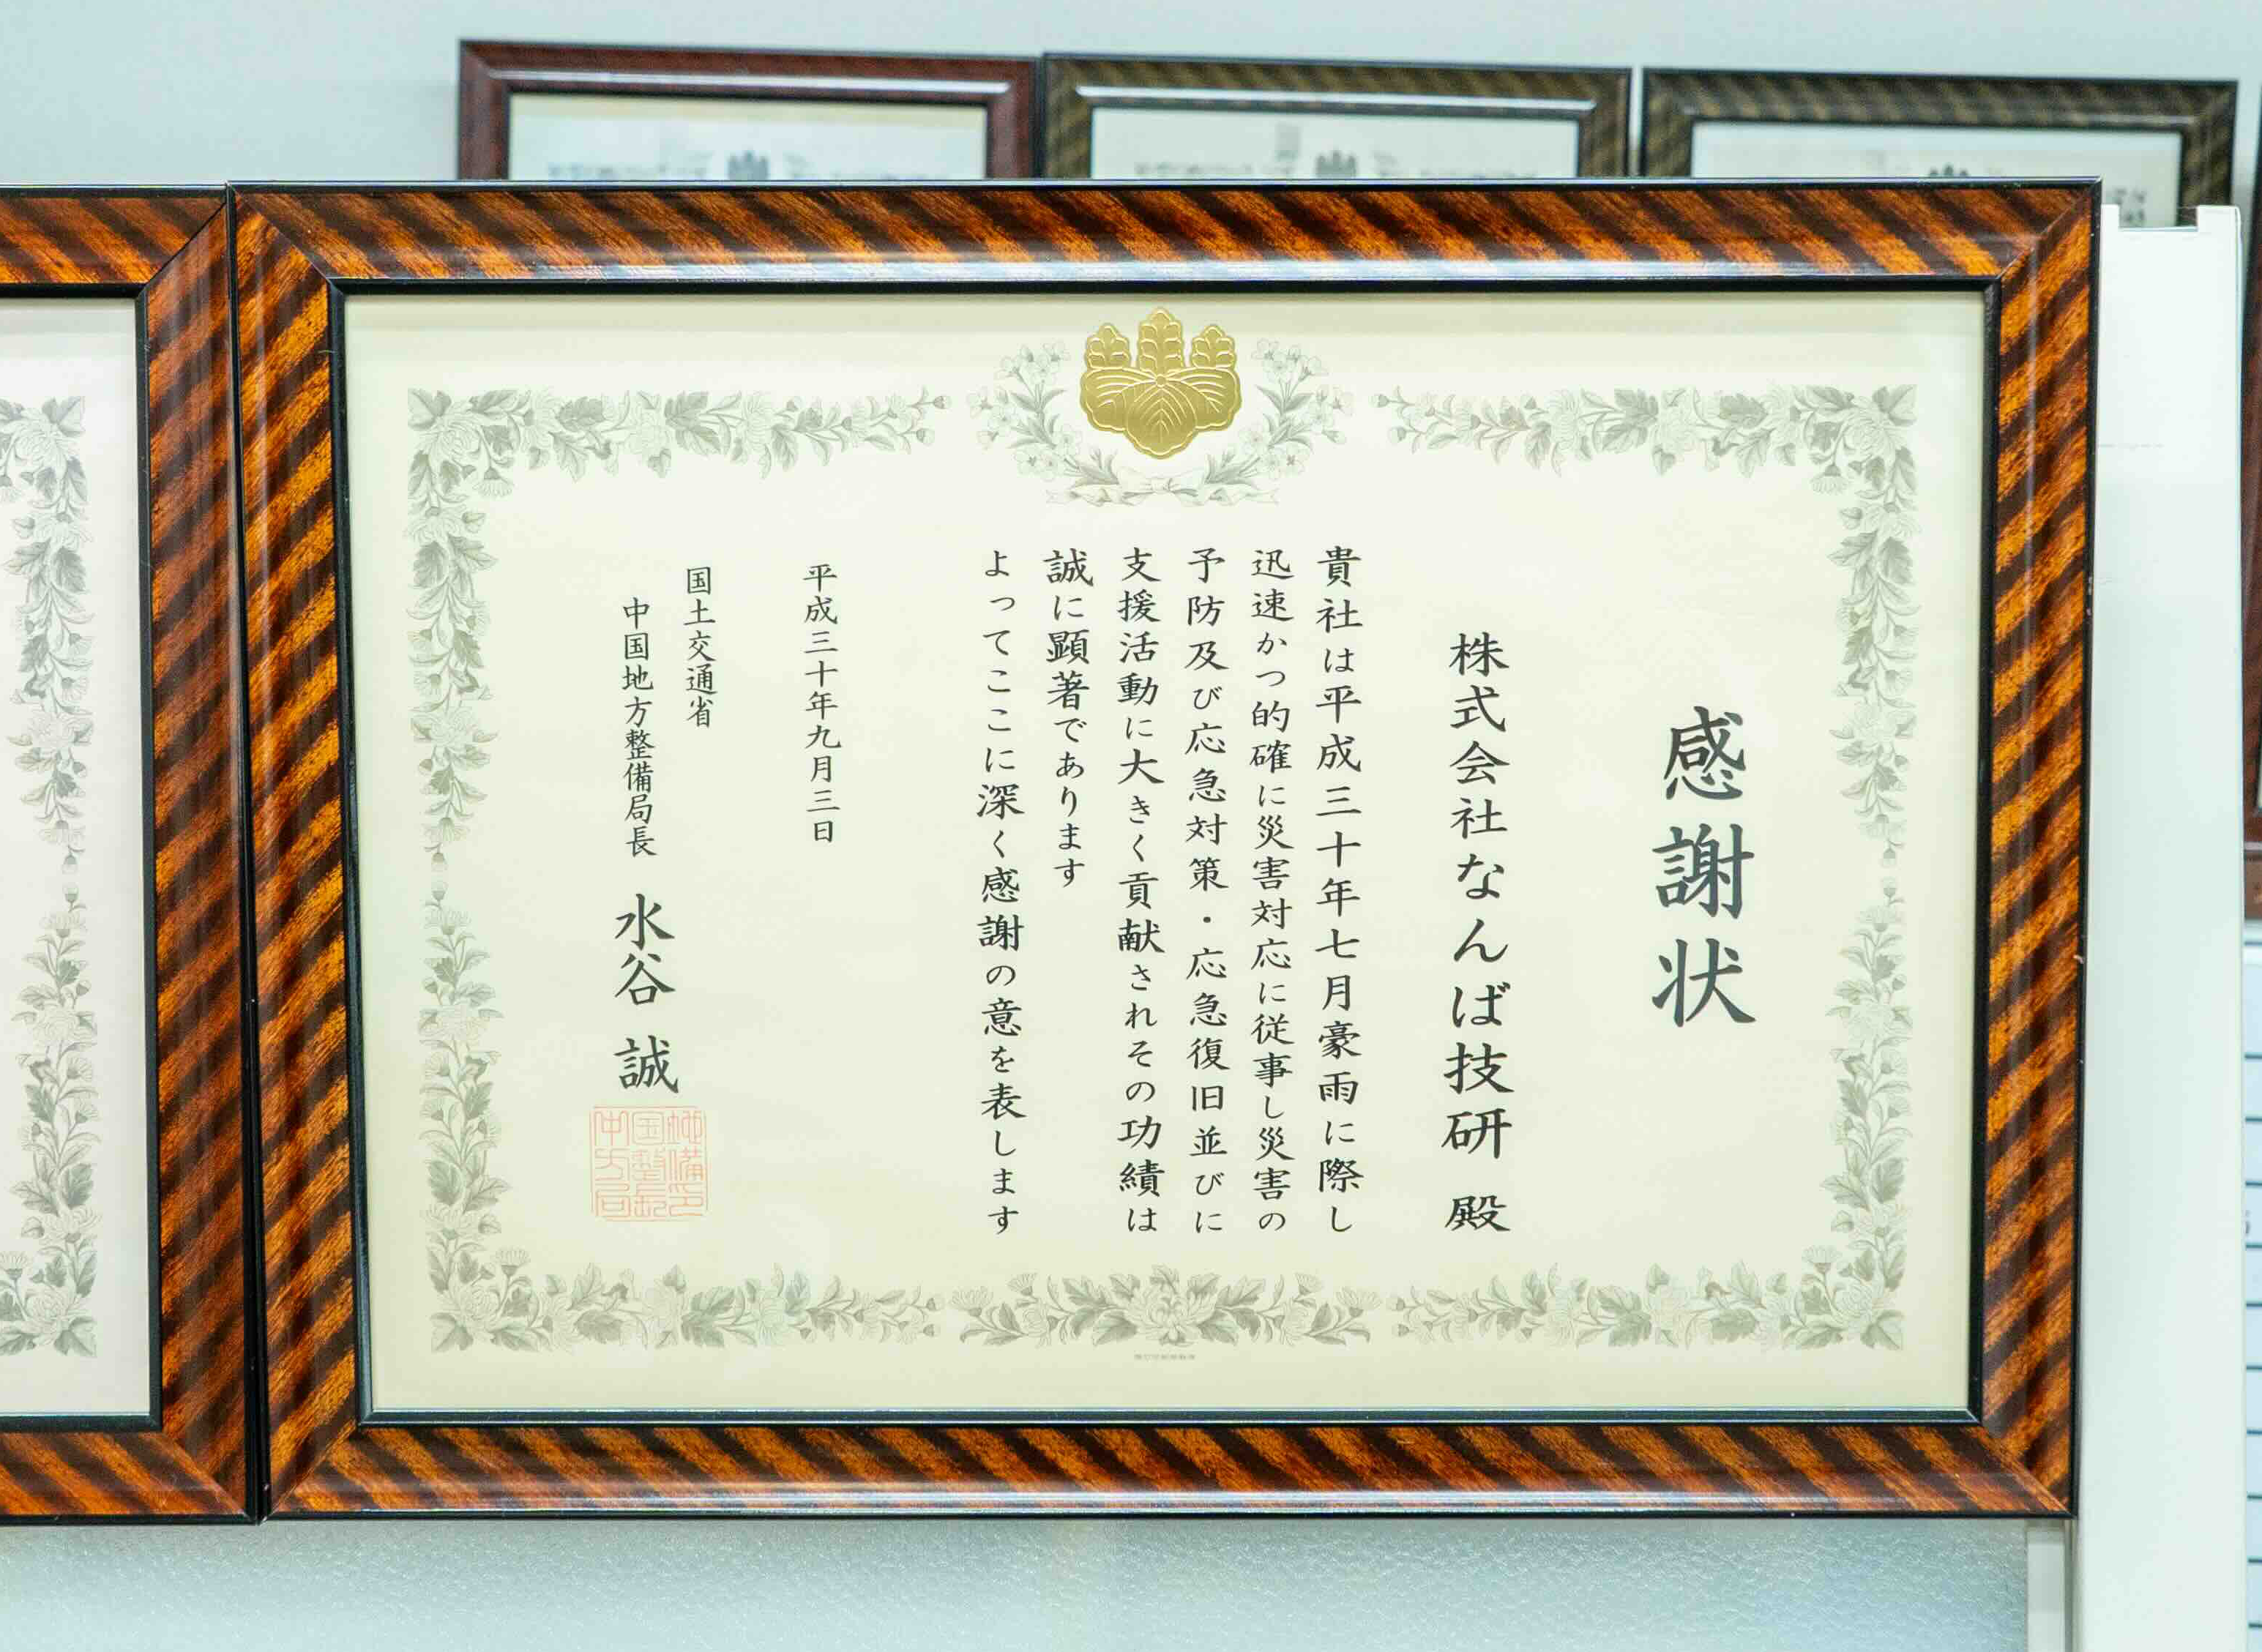 感謝状
株式会社なんば技研 殿
貴社は平成三十年七月豪雨に際し
迅速かつ的確に災害対応に従事し災害の
予防及び応急対策・応急復旧並びに
支援活動に大きく貢献されその功績は
誠に顕著であります
よってここに深く感謝の意を表します
平成三十年九月三日
国土交通省
中国地方整備局長 水谷 誠